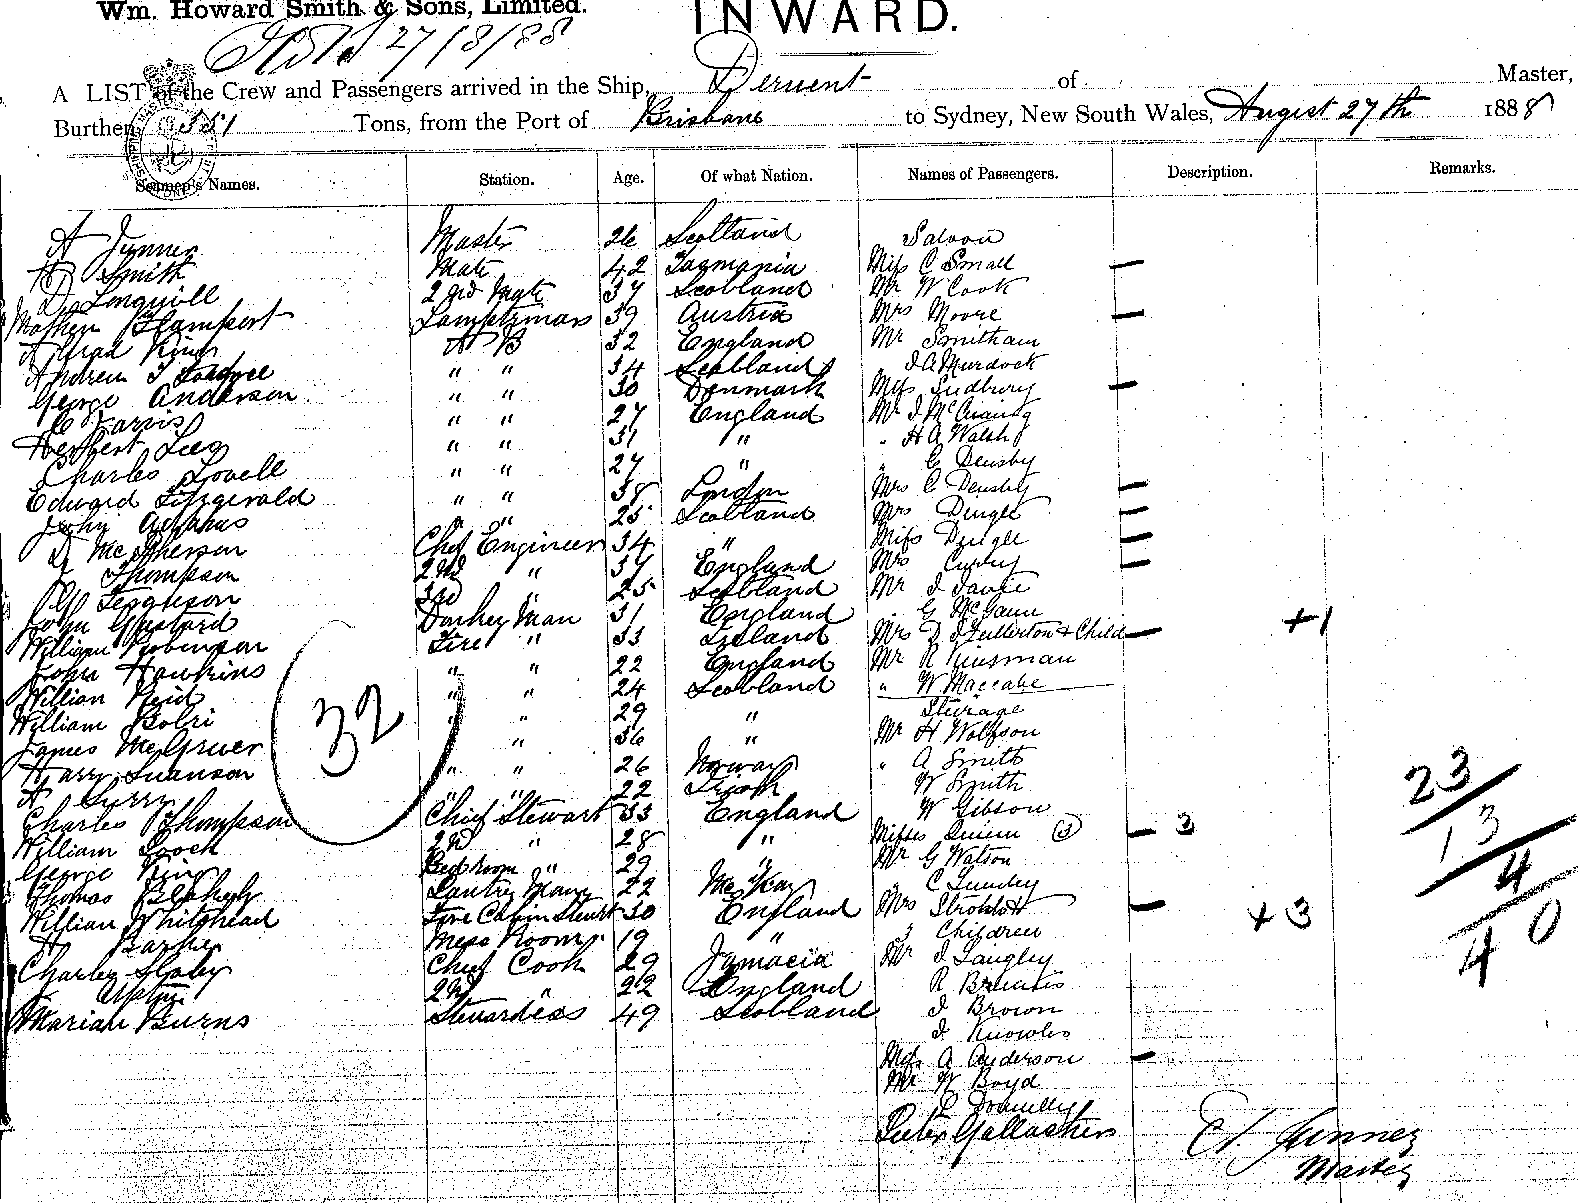 Wm. Howard Smith & Sons, Limited.
INWARD.
27/8/88
A LIST of the Crew and Passengers arrived in the Ship, Derwent of Master,
Burthen 551 Tons, from the Port of Brisbane to Sydney, New South Wales, August 27th 1888
Seamen's Names. Station. Age. Of what Nation. Names of Passengers. Description. Remarks.
Master 26 Scotland Saloon
Smith Mate 42 Tasmania Miss C Small —
2nd Mate 37 Scotland Mr W Cook
Lampt Lamptrimmer 39 Austria Mrs Moore —
Alfred King A B 32 England Mr Smitham
Andrew " " 34 Scotland " J A Murdock
George Anderson " " 30 Denmark Miss Sudbury —
C Jarvis " " 27 England Mr J
Herbert Lee " " 31 " " H A Walsh
Charles Lovell " " 27 " " C Densby
Edward Fitzgerald " " 38 London Mrs C Densby —
John Adams " " 25 Scotland Mrs Dingle —
D McPherson Chief Engineer 34 " Miss Dingle —
Thompson 2nd " 37 England Mrs Curley —
Ferguson 3rd " 25 Scotland Mr J
John Donkey Man 31 England " G McGann
William Robinson Fire " 33 Ireland Mrs D J Fullerton & Child — +1
John Hawkins " " 22 England Mr R Kinsman
William Reid " " 24 Scotland " W Maccabe
William " " 29 " Steerage
32
James McGruer " 36 " Mr H Wolfson
Harry Swanson " " 26 Norway " A Smith
" " 22 W Smith
Charles Thompson Chief Stewart 33 England W Gibson
William 2nd " 28 " Misses Quinn (3) — 3
George King Bed room " 29 " Mr G Watson
Thomas Pantry Man 22 McKay " C
William Whitehead Fore Cabin Stewart 30 England Mrs — +3
A Barker Mess Room " 19 " 3 Children
Charley Chief Cook 29 Jamacia Mr J Langley
2nd " 22 England R
Mariah Burns Stewardess 49 Scotland J Brown
J Knowles
Miss A Anderson —
Mr W Boyd
Peter Gallaghers
23
13
4
40
Master